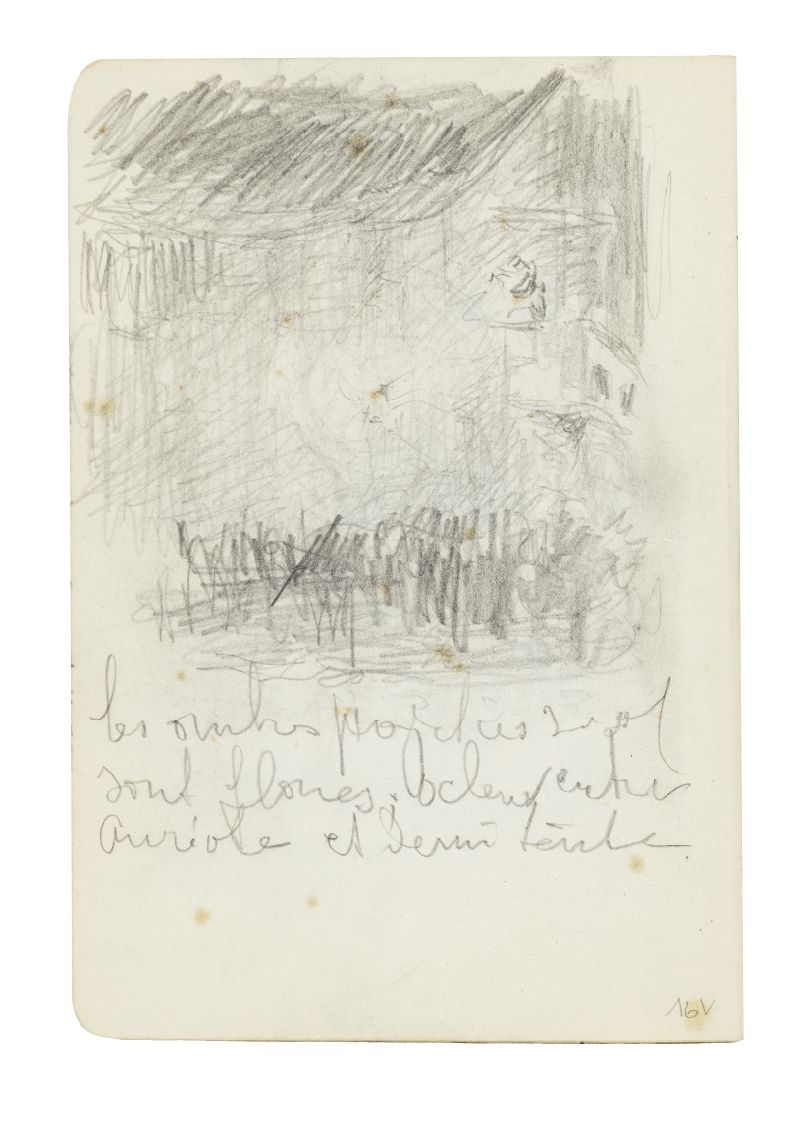 les ombres projetées sur sol
sont floues. entre
auréole et demi teinte
16V